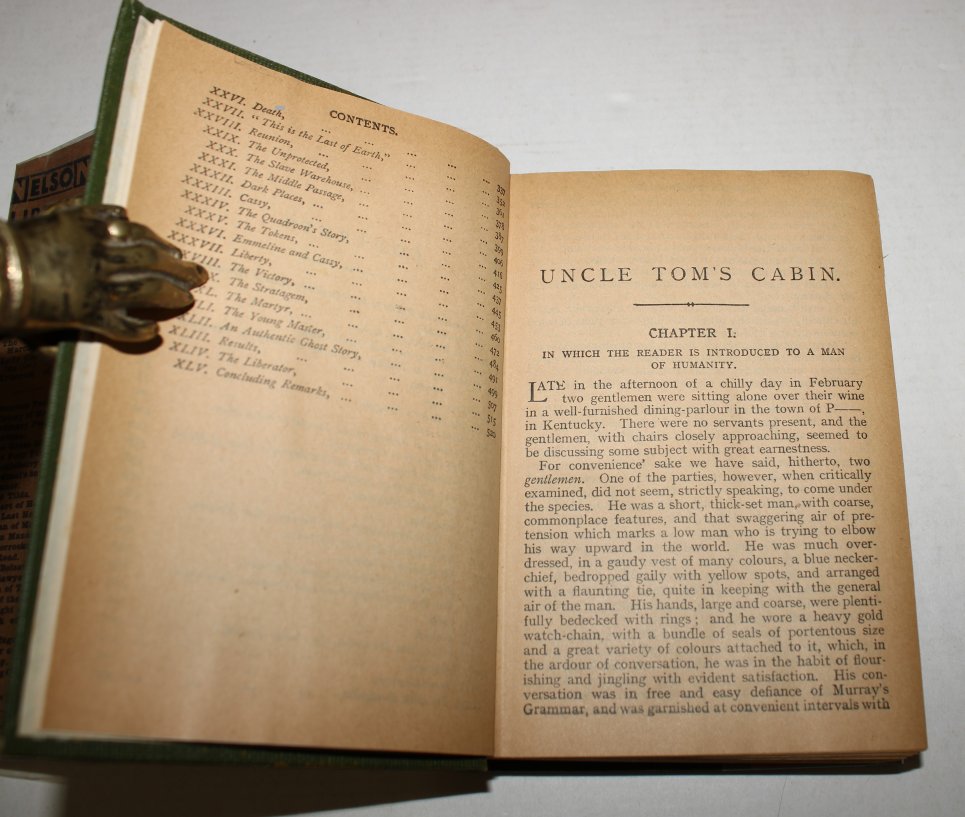 NELSON
CONTENTS.
XXVI. Death, ... ... ... ...
XXVII. "This is the Last of Earth," ... ... 352
XXVIII. Reunion, ... ... ... ... 361
XXIX. The Unprotected, ... ... ... 378
XXX. The Slave Warehouse, ... ... ... 387
XXXI. The Middle Passage, ... ... ... 399
XXXII. Dark Places, ... ... ... ... 406
XXXIII. Cassy, ... ... ... ... 416
XXXIV. The Quadroon's Story, ... ... 423
XXXV. The Tokens, ... ... ... ... 437
XXXVI. Emmeline and Cassy, ... ... ... 445
XXXVII. Liberty, ... ... ... ... 453
VIII. The Victory, ... ... ... ... 460
X. The Stratagem, ... ... ... 472
XL. The Martyr, ... ... ... ... 484
XLI. The Young Master, ... ... ... 491
XLII. An Authentic Ghost Story, ... ... 499
XLIII. Results, ... ... ... ... 507
XLIV. The Liberator, ... ... ... 515
XLV. Concluding Remarks, ... ... ... 520
UNCLE TOM'S CABIN.
CHAPTER I.
IN WHICH THE READER IS INTRODUCED TO A MAN
OF HUMANITY.
LATE in the afternoon of a chilly day in February
two gentlemen were sitting alone over their wine
in a well-furnished dining-parlour in the town of P——,
in Kentucky. There were no servants present, and the
gentlemen, with chairs closely approaching, seemed to
be discussing some subject with great earnestness.
For convenience' sake we have said, hitherto, two
gentlemen. One of the parties, however, when critically
examined, did not seem, strictly speaking, to come under
the species. He was a short, thick-set man, with coarse,
commonplace features, and that swaggering air of pre-
tension which marks a low man who is trying to elbow
his way upward in the world. He was much over-
dressed, in a gaudy vest of many colours, a blue necker-
chief, bedropped gaily with yellow spots, and arranged
with a flaunting tie, quite in keeping with the general
air of the man. His hands, large and coarse, were plenti-
fully bedecked with rings; and he wore a heavy gold
watch-chain, with a bundle of seals of portentous size
and a great variety of colours attached to it, which, in
the ardour of conversation, he was in the habit of flour-
ishing and jingling with evident satisfaction. His con-
versation was in free and easy defiance of Murray's
Grammar, and was garnished at convenient intervals with